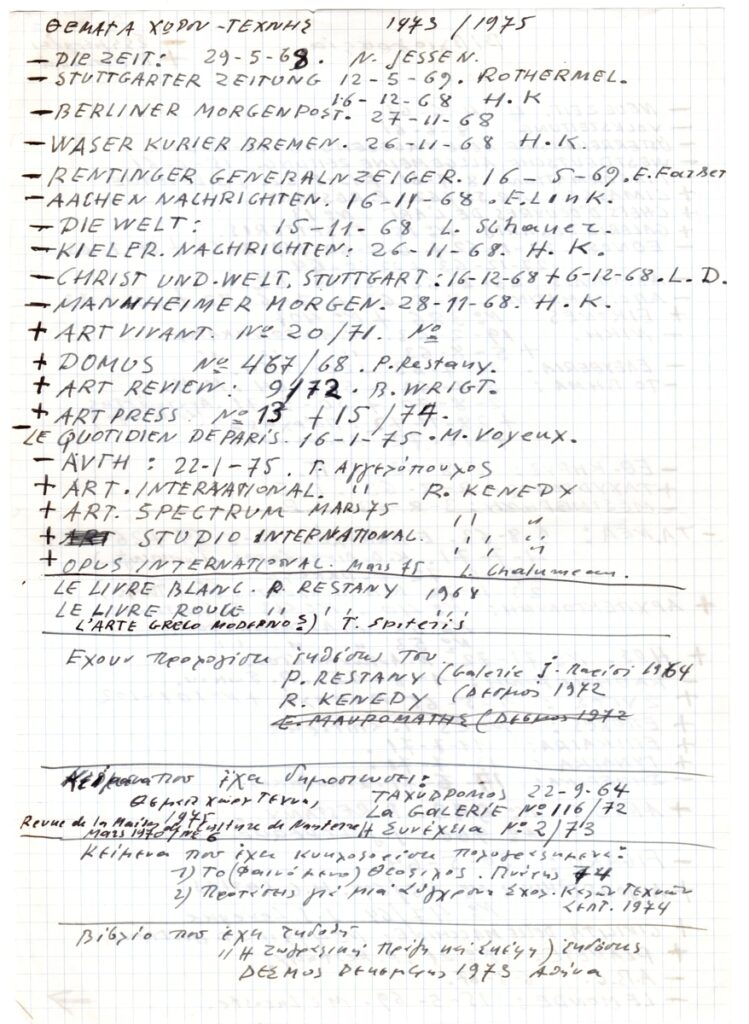 ΘΕΜΑΤΑ ΧΩΡΟΥ-ΤΕΧΝΗΣ 1973/1975
- DIE ZEIT: 29-5-68. N. JESSEN.
- STUTTGARTER ZEITUNG 12-5-69. ROTHERMEL.
16-12-68 H.K
- BERLINER MORGENPOST. 27-11-68
- WASER KURIER BREMEN. 26-11-68 H.K.
- RENTINGER GENERALNZEIGER. 16-5-69. E. Farber
- AACHEN NACHRICHTEN. 16-11-68. E. Link.
- DIE WELT: 15-11-68 L. Schauer.
- KIELER. NACHRICHTEN: 26-11-68. H.K.
- CHRIST UND. WELT. STUTTGART: 16-12-68+6-12-68. L.D.
- MANNHEIMER MORGEN. 28-11-68. H.K.
+ ART VIVANT. Nº 20/71. Nº
+ DOMUS Nº 467/68. P. Restany.
+ ART REVIEW: 9/72. B. WRIGT.
+ ART PRESS. Nº 13 + 15/74.
LE QUOTIDIEN DE PARIS. 16-1-75. M. Voyeux.
- ΑΥΓΗ: 22-1-75. Γ. Αγγελόπουλος
+ ART. INTERNATIONAL. ,, R. KENEDY
+ ART. SPECTRUM MARS 75 ,, "
+ ART STUDIO INTERNATIONAL. ,, "
+ OPUS INTERNATIONAL. Mars 75 L. Chalumeau.
LE LIVRE BLANC. P. RESTANY 1968
LE LIVRE ROUGE ,, ,, ,,
L'ARTE GRECO MODERNO) T. Spiteris
Εχουν προλογίσει εκθέσεις του
P. RESTANY (Galerie J. Παρίσι 1964
R. KENEDY (Δεσμός 1972
Ε. ΜΑΥΡΟΜΑΤΗΣ (Δεσμός 1972
Κείμενα που έχει δημοσιεύσει:
Θέματα Χώρου Τέχνης, ΤΑΧΥΔΡΟΜΟΣ 22-9-64
1975 La GALERIE Nº 116/72
Revue de la Maison de Culture de Nanterre Η Συνέχεια Nº 2/73
Mars 1970 Nº 6
Κείμενα που έχει κυκλοφορήσει πολυγραφημένα:
1) Το (Φαινόμενο) Θεόφιλος. 74
2) Προτάσεις γιά μιά σύγχρονη Σχολ. Καλών Τεχνών
ΣΕΠΤ. 1974
Βιβλίο που έχει εκδοθή
,, Η Ζωγραφική Πράξη και Σκέψη) εκδόσεις
ΔΕΣΜΟΣ Δεκέμβρης 1973 Αθήνα